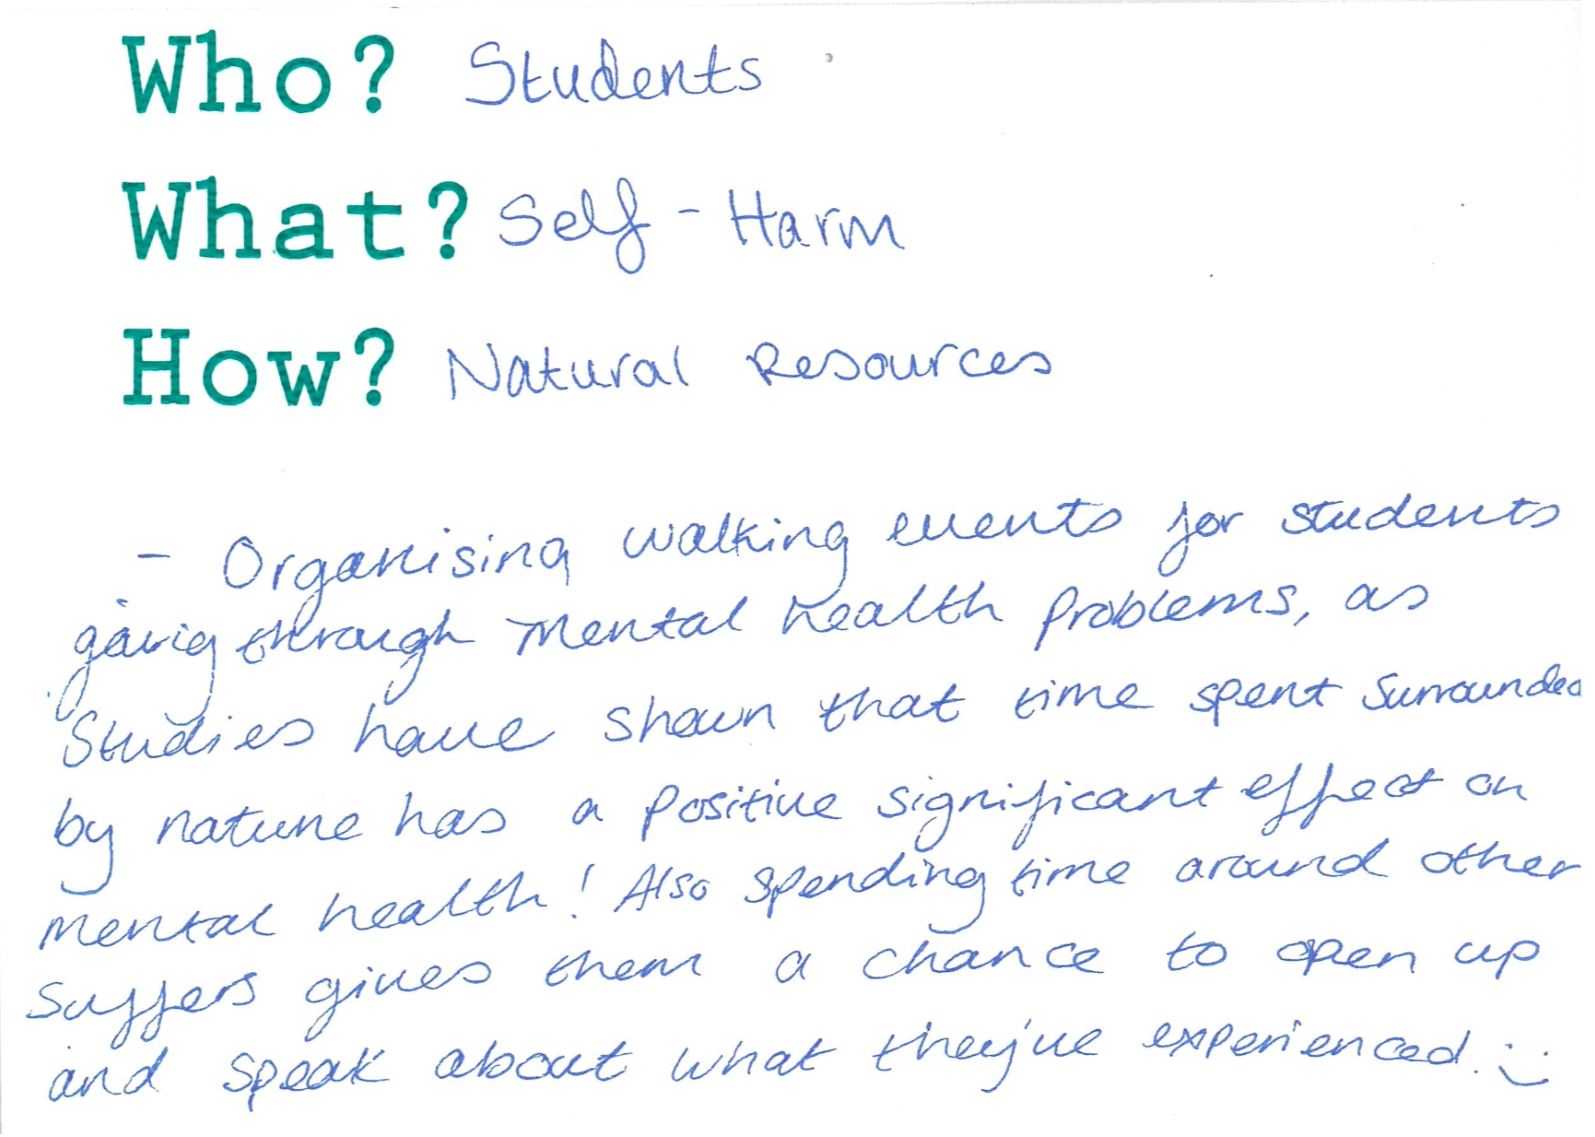 Who? Students
What? Self-Harm
How? Natural Resources
- Organising walking events for students
going through mental health problems, as
studies have shown that time spent surrounded
by nature has a positive significant effect on
mental health! Also spending time around other
suffers gives them a chance to open up
and speak about what they've experienced. :)